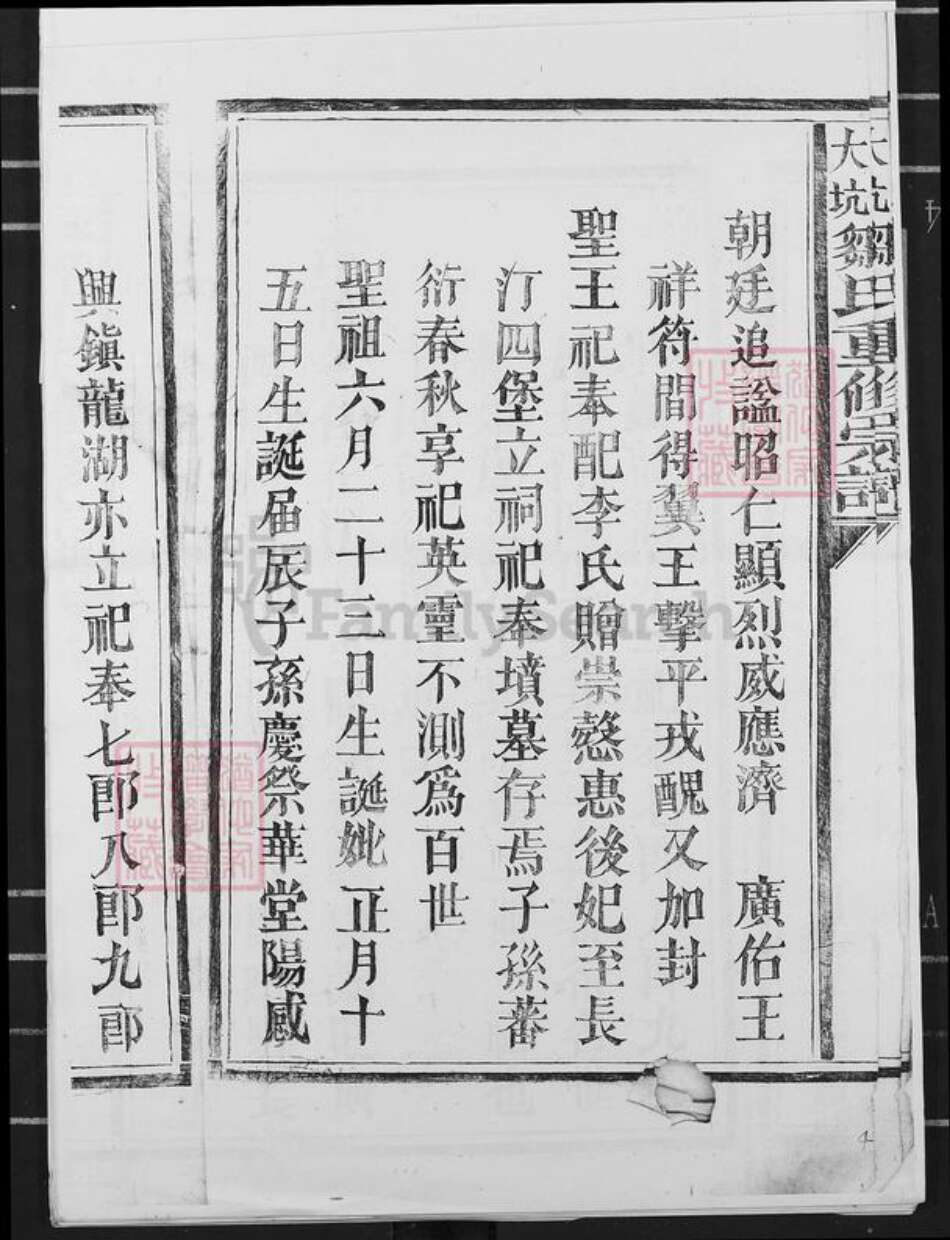 大坑鄒氏重修宗譜
朝廷追謚昭仁顯烈威應濟　廣佑王
祥符間得翼王擊平戎醜又加封
聖王祀奉配李氏贈崇懿惠後妃至長
汀四堡立祠祀奉墳墓存焉子孫蕃
衍春秋享祀英靈不測爲百世
聖祖六月二十三日生誕妣正月十
五日生誕届辰子孫慶祭華堂陽感
興鎭龍湖亦立祀奉七郎八郎九郎
FamilySearch